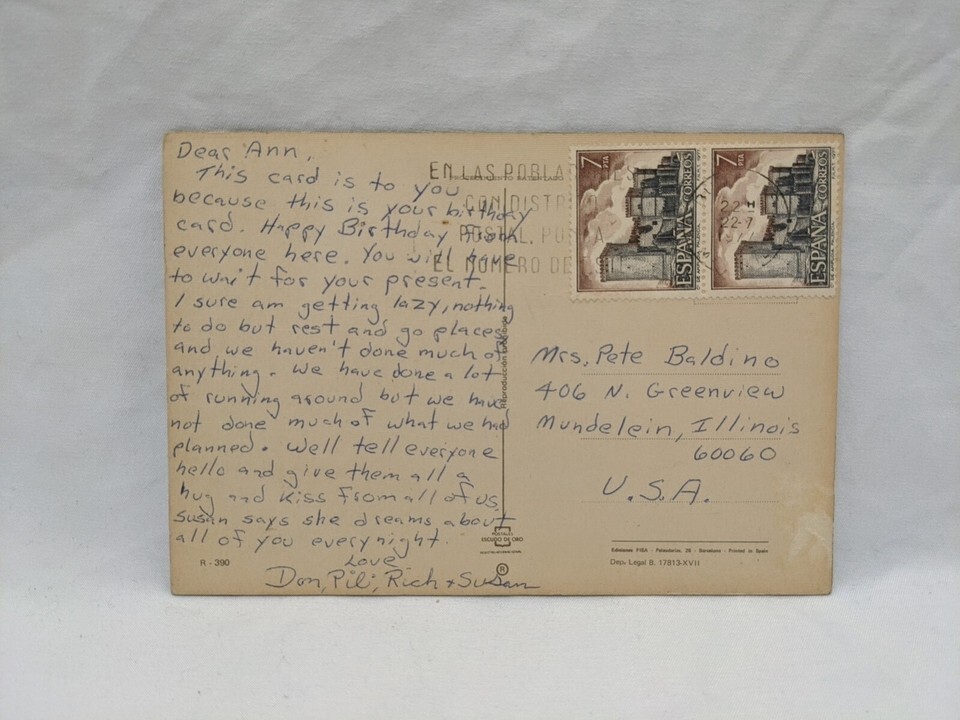 Dear Ann,
This card is to you
because this is your birthday
card. Happy Birthday From
everyone here. You will have
to wait for your present.
I sure am getting lazy, nothing
to do but rest and go places
and we haven't done much of
anything. We have done a lot
of running around but we have
not done much of what we had
planned. Well tell everyone
hello and give them all a
hug and kiss from all of us
Susan says she dreams about
all of you every night.
Love
Don, Pili, Rich + Susan
R - 390
EN LAS POBLA
CON DISTR
POSTAL, PO
EL NUMERO DE
POSTALES
ESCUDO DE ORO
R
7 PTA
ESPAÑA
CORREOS
7 PTA
ESPAÑA
CORREOS
Mrs. Pete Baldino
406 N. Greenview
Mundelein, Illinois
60060
U.S.A.
Ediciones FISA - Palaudarias, 26 - Barcelona - Printed in Spain
Dep. Legal B. 17813-XVII